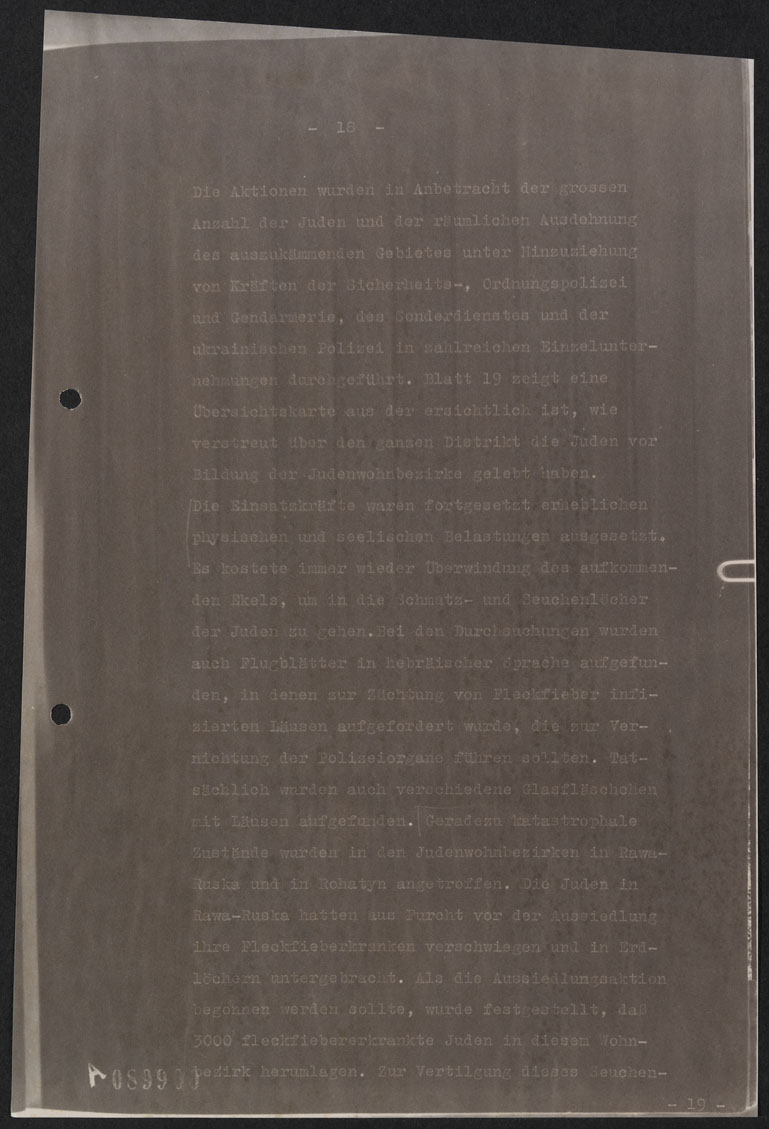 - 18 -
Die Aktionen wurden in Anbetracht der grossen
Anzahl der Juden und der räumlichen Ausdehnung
des auszukämmenden Gebietes unter Hinzuziehung
von Kräften der Sicherheits-, Ordnungspolizei
und Gendarmerie, des Sonderdienstes und der
ukrainischen Polizei in zahlreichen Einzelunter-
nehmungen durchgeführt. Blatt 19 zeigt eine
Übersichtskarte aus der ersichtlich ist, wie
verstreut über den ganzen Distrikt die Juden vor
Bildung der Judenwohnbezirke gelebt haben.
Die Einsatzkräfte waren fortgesetzt erheblichen
physischen und seelischen Belastungen ausgesetzt.
Es kostete immer wieder Überwindung des aufkommen-
den Ekels, um in die Schmutz- und Seuchenlöcher
der Juden zu gehen.Bei den Durchsuchungen wurden
auch Flugblätter in hebräischer Sprache aufgefun-
den, in denen zur Züchtung von Fleckfieber infi-
zierten Läusen aufgefordert wurde, die zur Ver-
nichtung der Polizeiorgane führen sollten. Tat-
sächlich wurden auch verschiedene Glasfläschchen
mit Läusen aufgefunden. Geradezu katastrophale
Zustände wurden in den Judenwohnbezirken in Rawa-
Ruska und in Rohatyn angetroffen. Die Juden in
Rawa-Ruska hatten aus Furcht vor der Aussiedlung
ihre Fleckfieberkranken verschwiegen und in Erd-
löchern untergebracht. Als die Aussiedlungsaktion
begonnen werden sollte, wurde festgestellt, daß
3000 fleckfiebererkrankte Juden in diesem Wohn-
bezirk herumlagen. Zur Vertilgung dieses Seuchen-
- 19 -